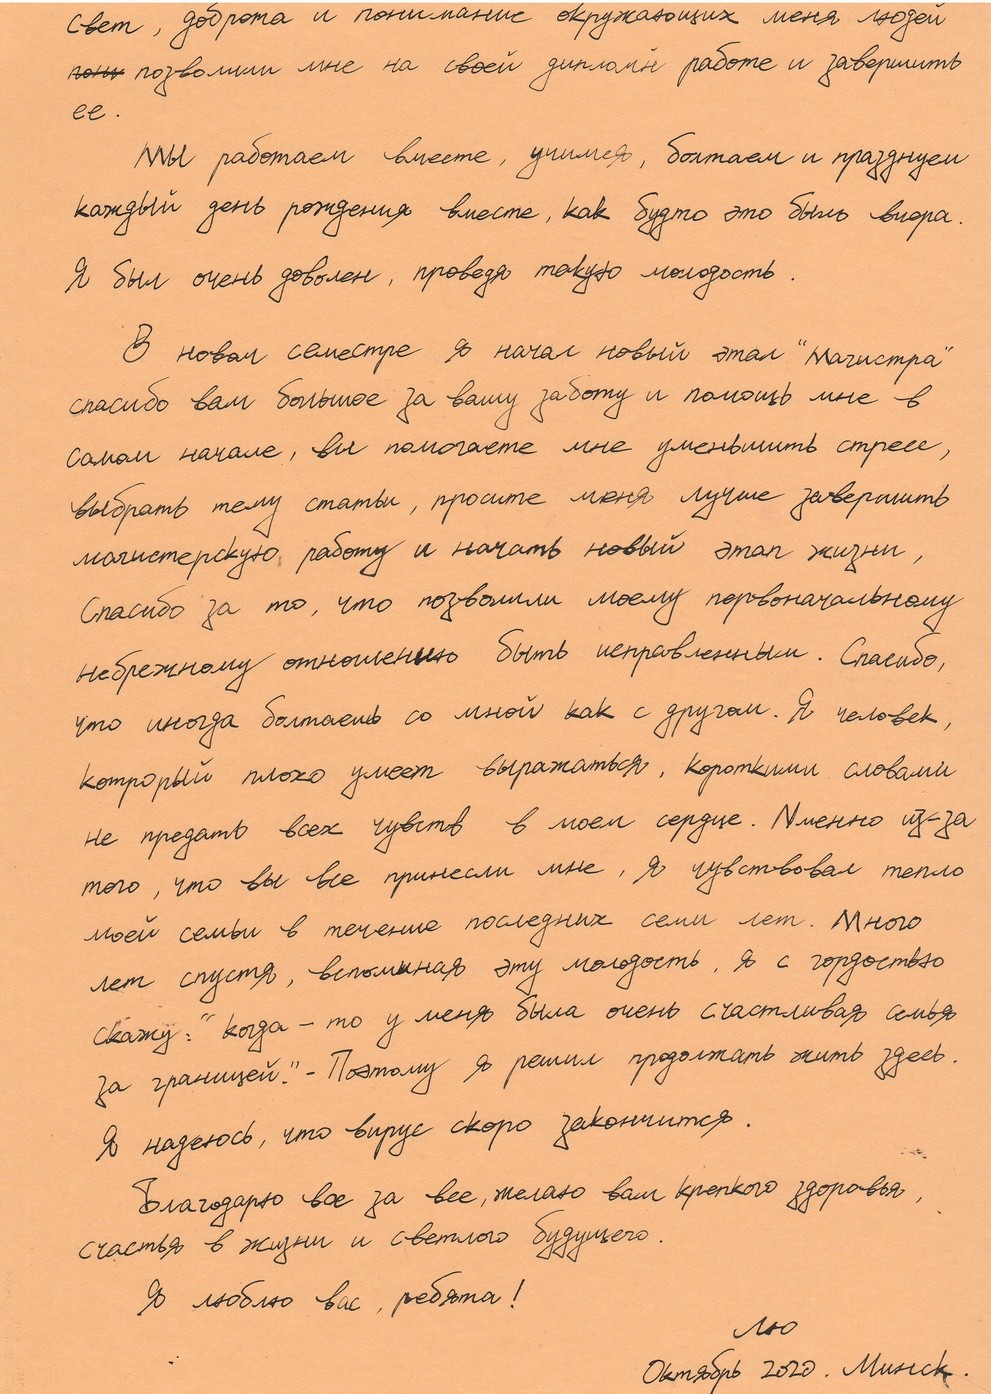 свет, доброта и понимание окружающих меня людей
позволили мне на своей дипломн работе и завершить
ее.
Мы работаем вместе, учимся, болтаем и празднуем
каждый день рождения вместе, как будто это было вчера.
Я был очень доволен, проведя такую молодость.
В новом семестре я начал новый этап "Магистра"
спасибо вам большое за вашу заботу и помощь мне в
самом начале, вы помогаете мне уменьшить стресс,
выбрать тему статьи, просите меня лучше завершить
магистерскую работу и начать новый этап жизни,
Спасибо за то, что позволили моему первоначальному
небрежному отношению быть исправленным. Спасибо,
что иногда болтаешь со мной как с другом. Я человек,
которорый плохо умеет выражаться, короткими словами
не предать всех чувств в моем сердце. Именно из-за
того, что вы все принесли мне, я чувствовал тепло
моей семьи в течение последних семи лет. Много
лет спустя, вспоминая эту молодость, я с гордостью
скажу: "когда-то у меня была очень счастливая семья
за границей." - Поэтому я решил продолжать жить здесь.
Я надеюсь, что вирус скоро закончится.
Благодарю вас за все, желаю вам крепкого здоровья,
счастья в жизни и светлого будущего.
Я люблю вас, ребята!
Лю
Октябрь 2020. Минск.